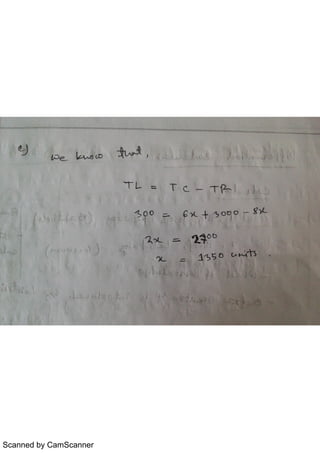 e) we know that,
TL = TC - TR
300 = 6x + 3000 - 8x
2x = 2700
x = 1350 units.
Scanned by CamScanner